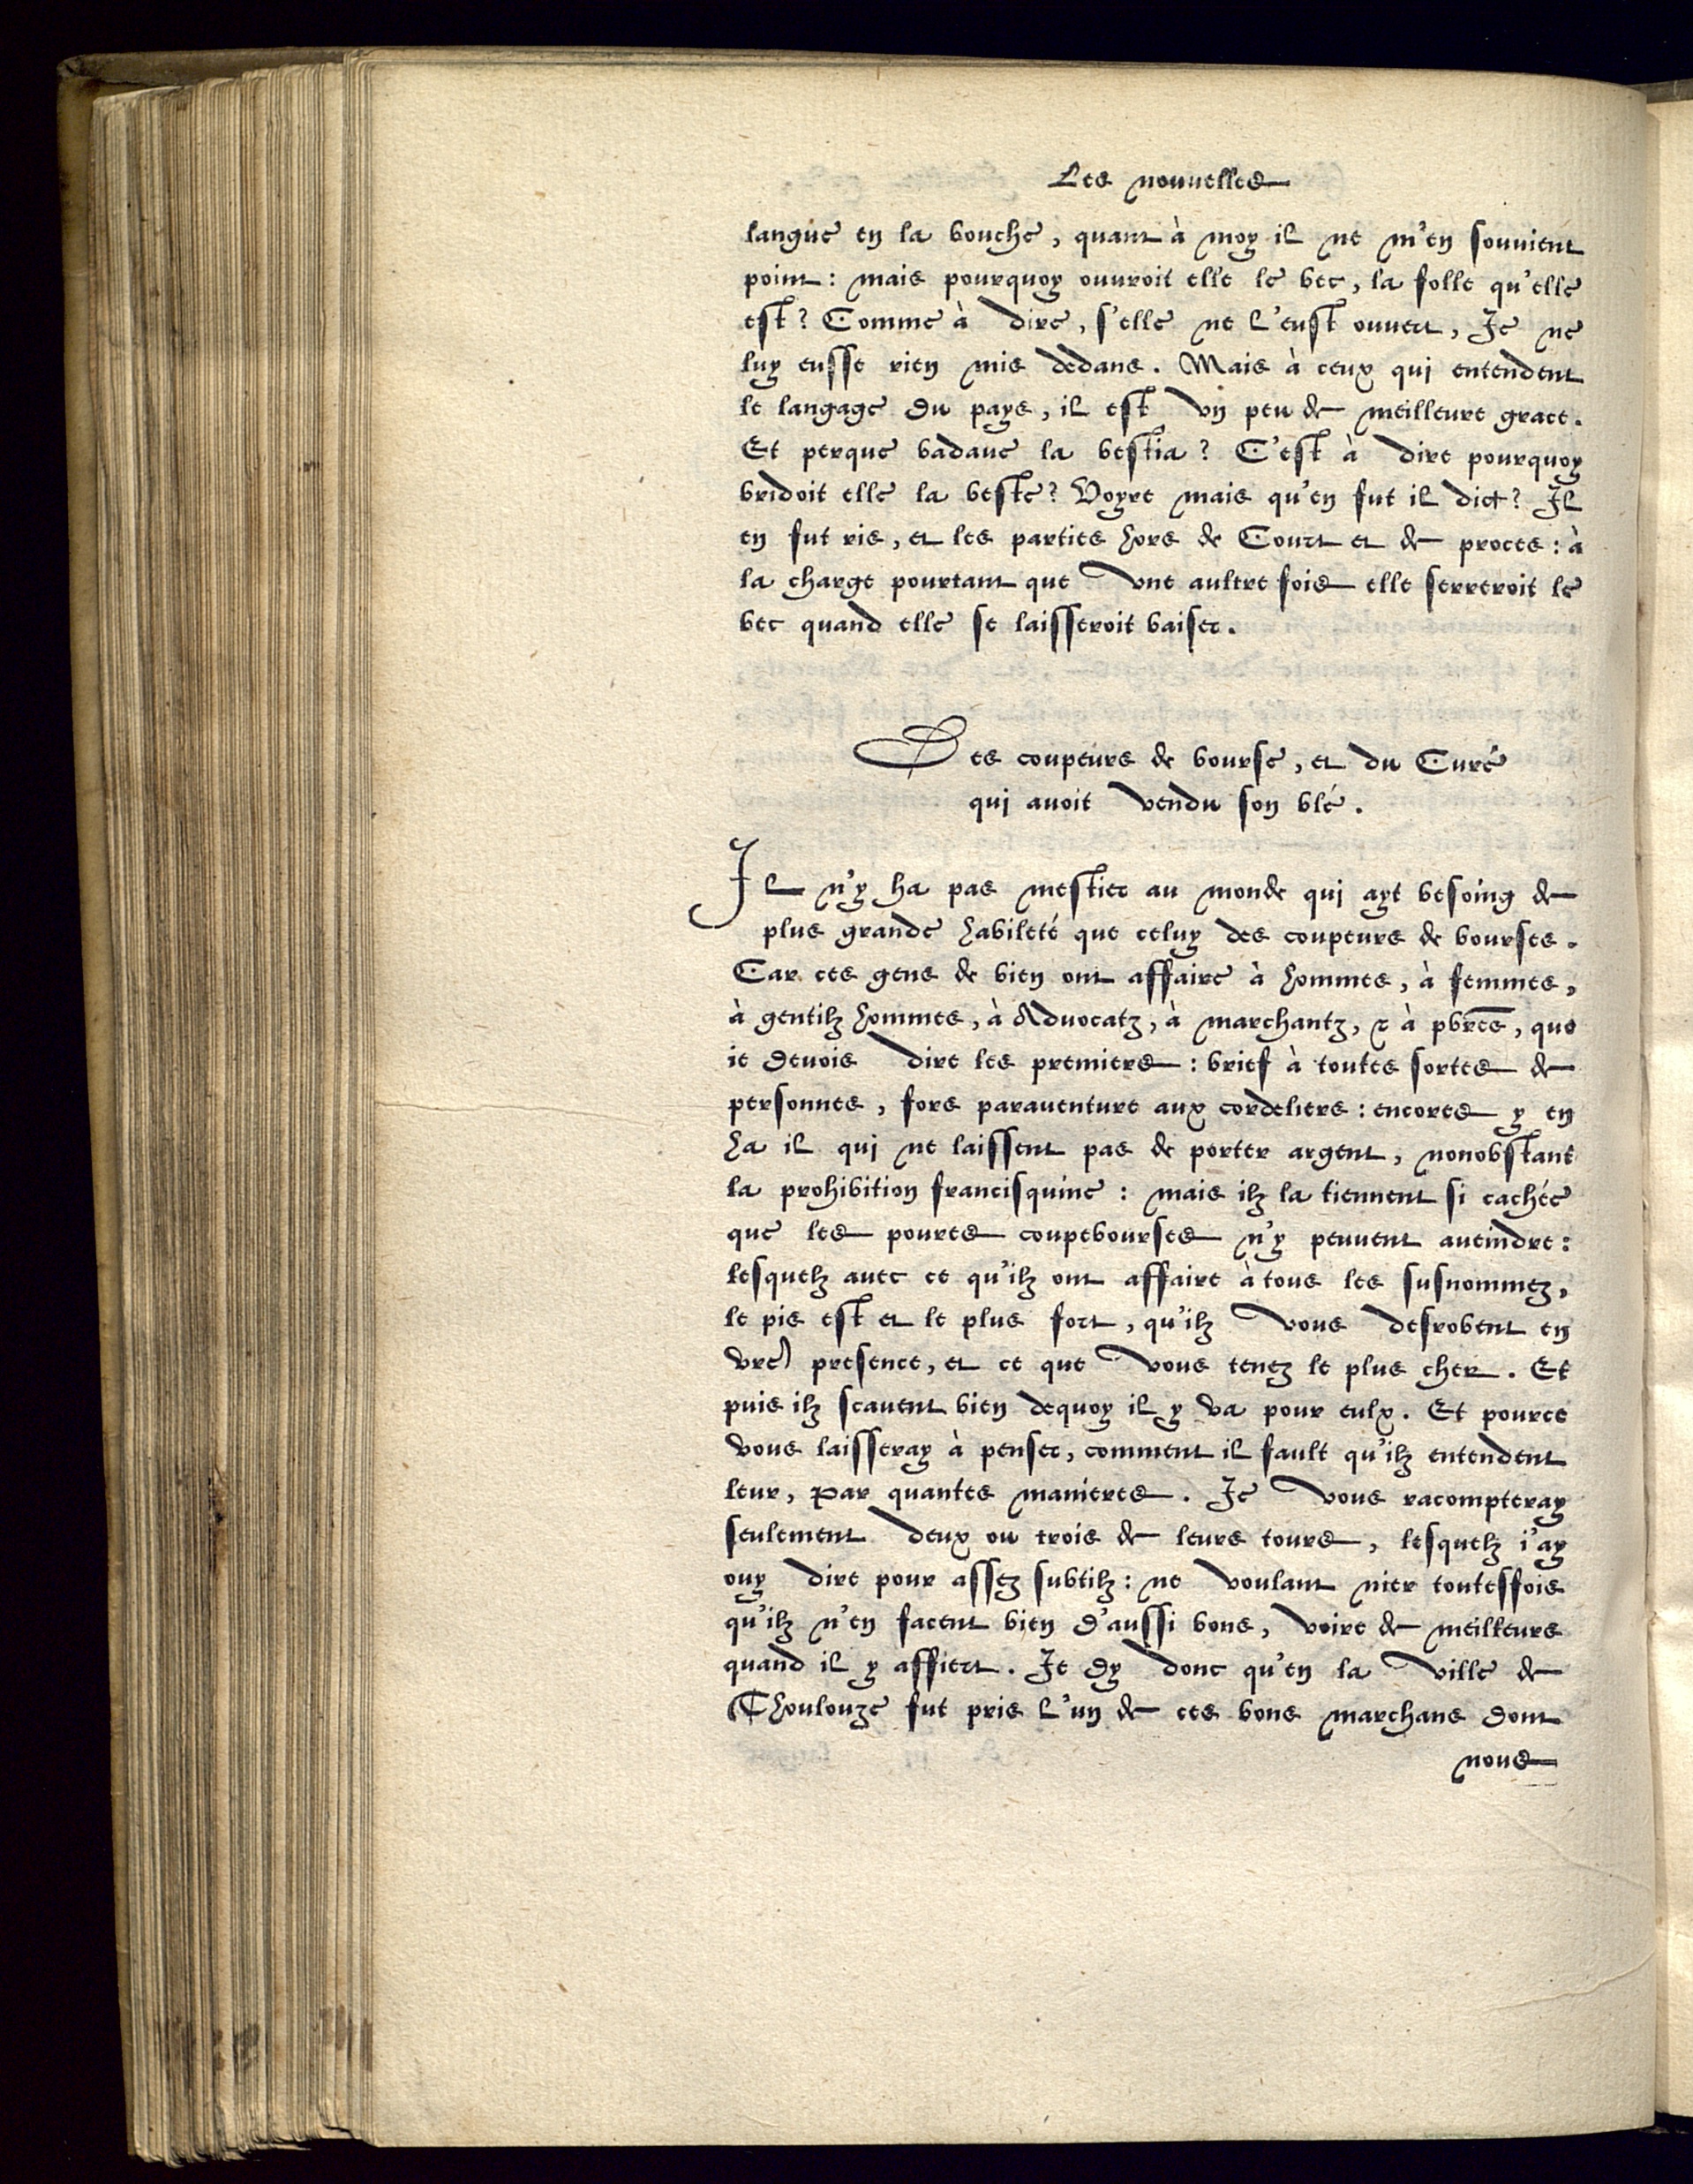 Les nouuelles
langue en la bouche, quant à moy il ne m'en souuient
point : mais pourquoy ouuroit elle le bec, la folle qu'elle
est ? Comme à dire, s'elle ne l'eust ouuert, Je ne
luy eusse rien mis dedans. Mais à ceux qui entendent
le langage du pays, il est vn peu de meilleure grace.
Et perque badaue la bestia ? C'est à dire pourquoy
bridoit elle la beste ? Voyre mais qu'en fut il dict ? Il
en fut ris, et les parties hors de Court et de proces : à
la charge pourtant que vne aultre fois elle serreroit le
bec quand elle se laisseroit baiser.
Des coupeurs de bourse, et du Curé
qui auoit vendu son blé.
Il n'y ha pas mestier au monde qui ayt besoing de
plus grande habileté que celuy des coupeurs de bourses.
Car ces gens de bien ont affaire à hommes, à femmes,
à gentilz hommes, à Aduocatz, à marchantz, & à pbr̄es, que
ie deuois dire les premiers : brief à toutes sortes de
personnes, fors parauenture aux cordeliers : encores y en
ha il qui ne laissent pas de porter argent, nonobstant
la prohibition francisquine : mais ilz la tiennent si cachée
que les poures coupebourses n'y peuuent aueindre :
lesquelz auec ce qu'ilz ont affaire à tous les susnommez,
le pis est et le plus fort, qu'ilz vous desrobent en
vre presence, et ce que vous tenez le plus cher. Et
puis ilz scauent bien dequoy il y va pour eulx. Et pource
vous laisseray à penser, comment il fault qu'ilz entendent
leur, par quantes manieres. Je vous racompteray
seulement deux ou trois de leurs tours, lesquelz i'ay
ouy dire pour assez subtilz : ne voulant nier toutesfois
qu'ilz n'en facent bien d'aussi bons, voire de meilleurs
quand il y affiert. Je dy donc qu'en la ville de
Thoulouze fut pris l'un de ces bons marchans dont
nous